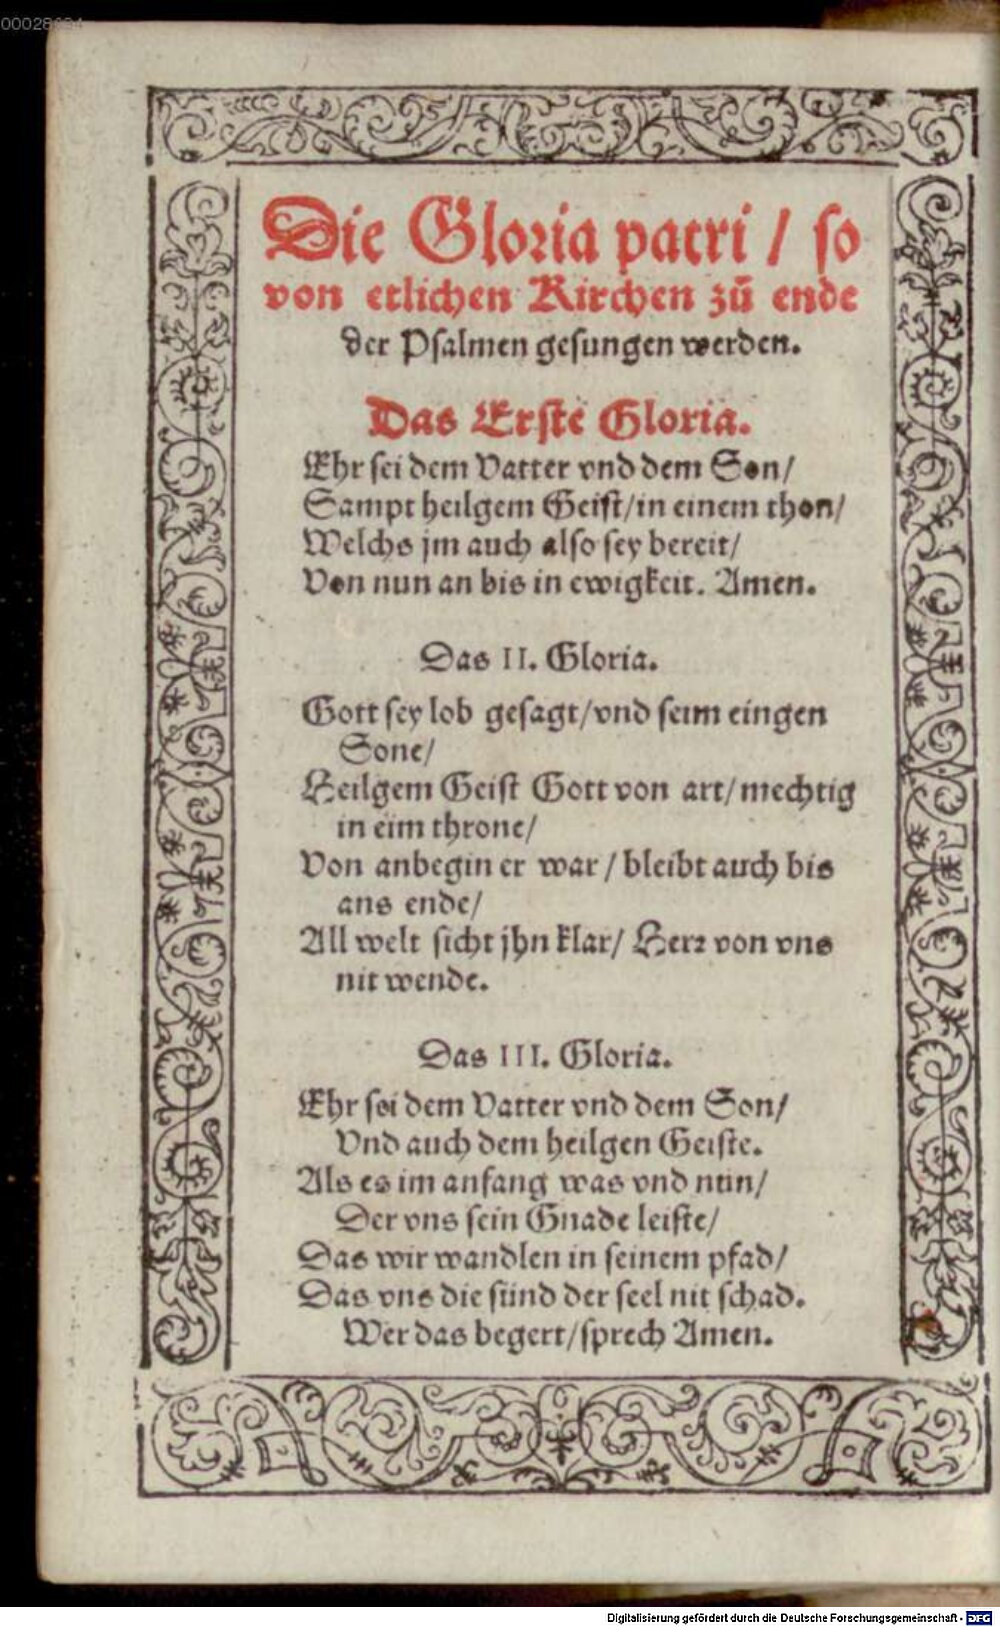 Die Gloria patri / so
von etlichen Kirchen zů ende
der Psalmen gesungen werden.
Das Erste Gloria.
Ehr sei dem Vatter vnd dem Son/
Sampt heilgem Geist/in einem thon/
Welchs jm auch also sey bereit/
Von nun an bis in ewigkeit. Amen.
Das II. Gloria.
Gott sey lob gesagt/vnd seim eingen
Sone/
Heilgem Geist Gott von art/mechtig
in eim throne/
Von anbegin er war / bleibt auch bis
ans ende/
All welt sicht jhn klar/ Herr von vns
nit wende.
Das III. Gloria.
Ehr sei dem Vatter vnd dem Son/
Vnd auch dem heilgen Geiste.
Als es im anfang was vnd nun/
Der vns sein Gnade leiste/
Das wir wandlen in seinem pfad/
Das vns die sünd der seel nit schad.
Wer das begert/sprech Amen.
Digitalisierung gefördert durch die Deutsche Forschungsgemeinschaft - DFG